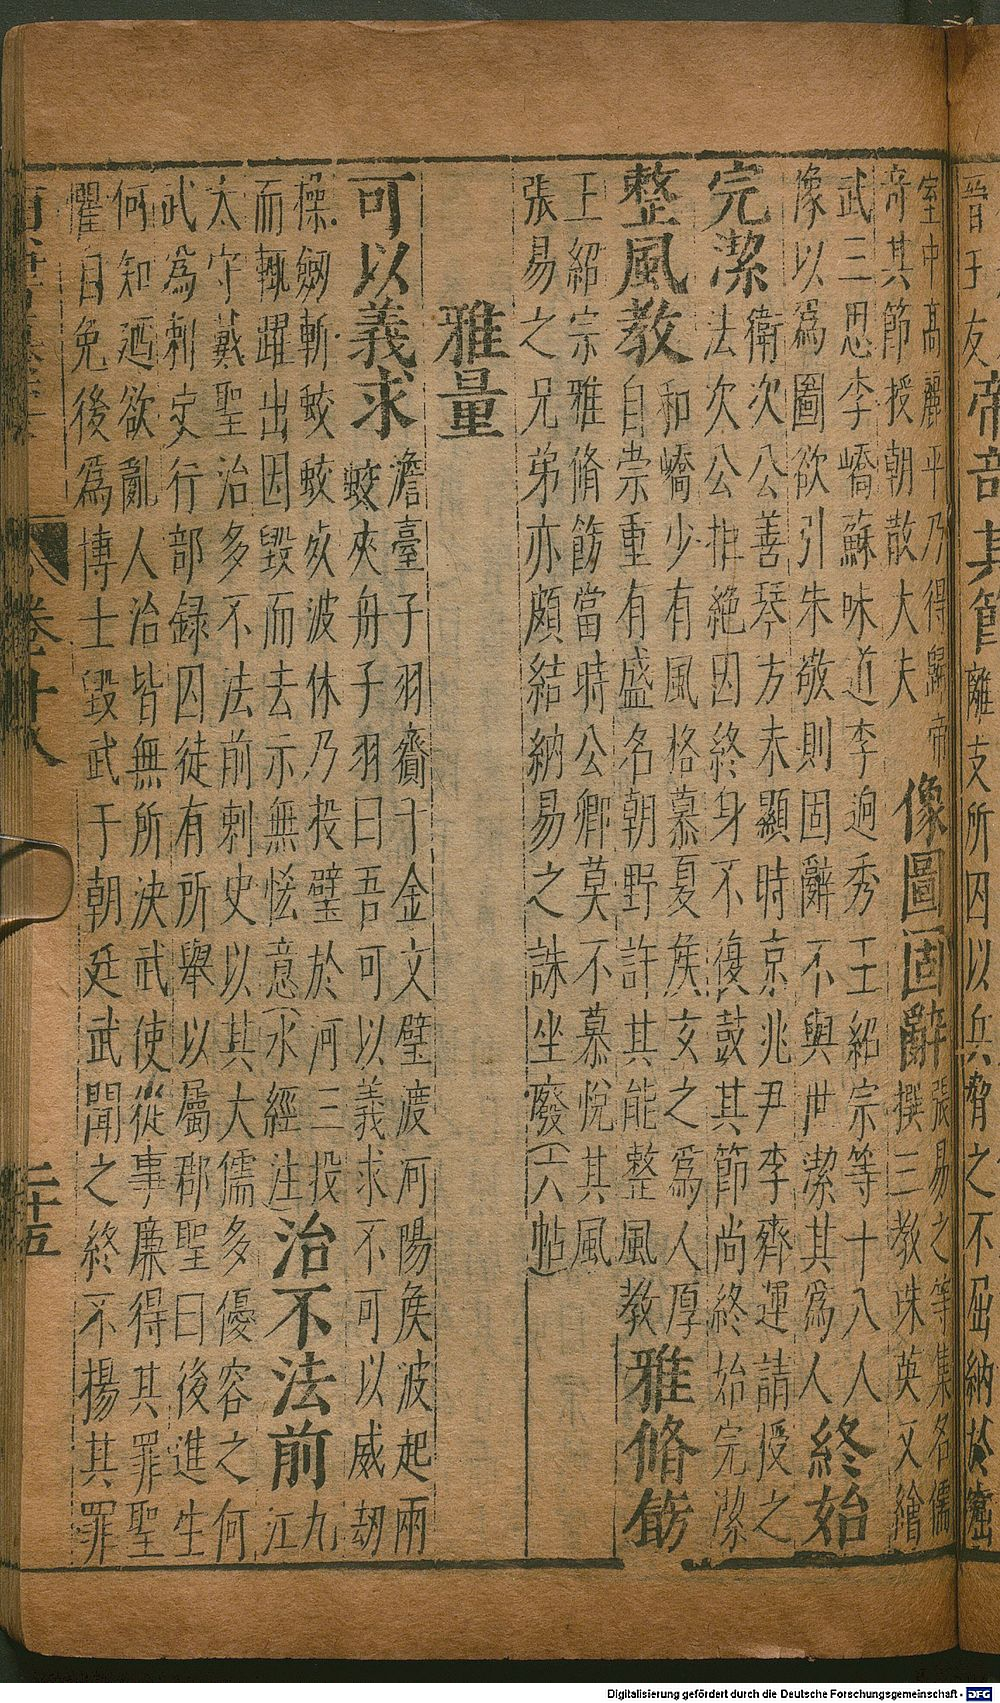 帝竒其節
離支所囚以兵脅之不屈納於窟
室中髙麗平乃得歸帝
竒其節授朝散大夫
像圖固辭
張易之等集名儒
撰三教珠英又繪
武三思李嶠蘇味道李逈秀王紹宗等十八人
像以爲圖欲引朱敬則固辭不與世潔其爲人
終始
完潔
衛次公善琴方未顯時京兆尹李齊運請授之
法次公拒絶因終身不復鼓其節尚終始完潔
整風教
和嶠少有風格慕夏矦玄之爲人厚
自崇重有盛名朝野許其能整風教
雅脩飭
王紹宗雅脩飭當時公卿莫不慕悅其風
張易之兄弟亦頗結納易之誅坐廢(六帖)
雅量
可以義求
澹臺子羽齎千金文璧渡河陽矦波起兩
蛟夾舟子羽曰吾可以義求不可以威刼
操劒斬蛟蛟死波休乃投璧於河三投
而輒躍出因毀而去示無恡意(水經注)
治不法前
九
江
太守戴聖治多不法前刺史以其大儒多優容之何
武爲刺史行部録囚徒有所舉以屬郡聖曰後進生
何知廼欲亂人治皆無所決武使從事廉得其罪聖
懼自免後爲博士毀武于朝廷武聞之終不揚其罪
卷十八
二十五
Digitalisierung gefördert durch die Deutsche Forschungsgemeinschaft - DFG